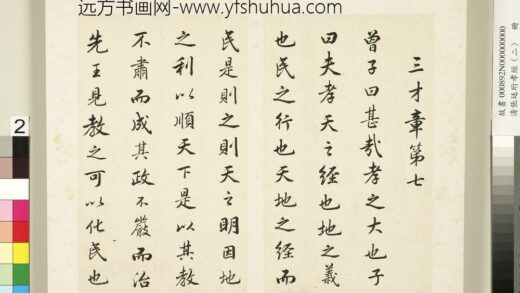 远方书画网-www.yfshuhua.com
三才章第七
曾子曰甚哉孝之大也子
曰夫孝天之經也地之義
也民之行也天地之經而
民是則之則天之明因地
之利以順天下是以其教
不肅而成其政不嚴而治
先王見教之可以化民也
故書000892N000000000 冊
清張廷珩孝經（二）
2